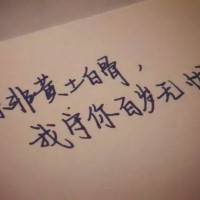 非黄土白骨，
我守你百岁无